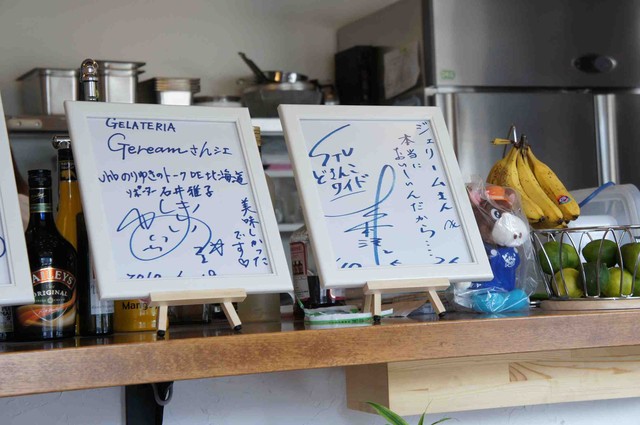 GELATERIA
Gereamさん江
uhbのりゆきのトークDE北海道
リポーター 石井雅子
美味しかった
です♡
STV
どさんこ
ワイド
ジェリームさん江
本当に
おいしいんだから…
BAILEYS
ORIGINAL